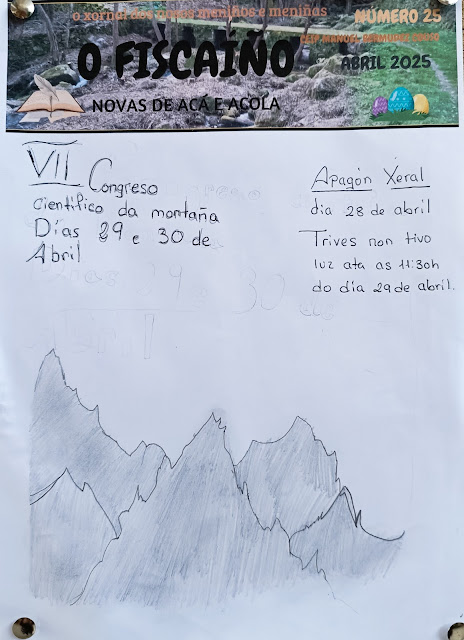 o xornal dos nosos meniños e meniñas
NÚMERO 25
O FISCAIÑO
ABRIL 2025
NOVAS DE ACÁ E ACOLA
VII Congreso
científico da montaña
Días 29 e 30 de
Abril
Apagón Xeral
día 28 de abril
Trives non tivo
luz ata as 11:30h
do día 29 de abril.